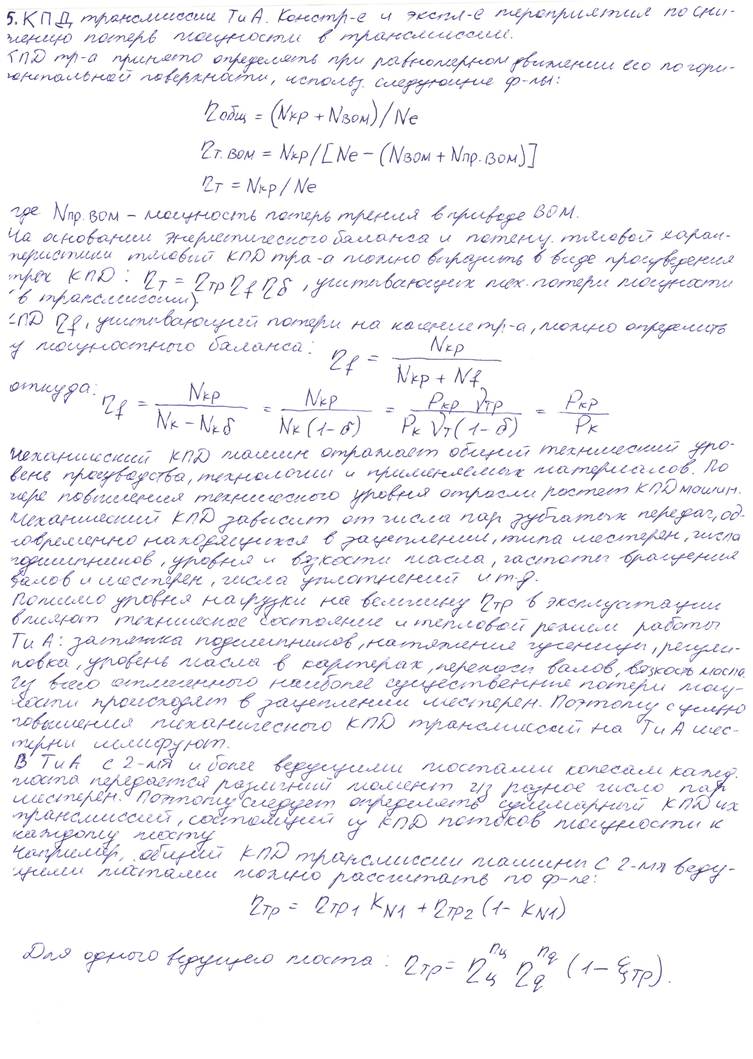 5. КПД, трансмиссии ТиА. Констр-е и экспл-е мероприятия по сни-
жению потерь мощности в трансмиссии.
КПД тр-а принято определять при равномерном движении его по гори-
зонтальной поверхности, использ. следующие ф-лы:
ηобщ = (Nкр + Nвом)/Ne
ηт.вом = Nкр/[Ne − (Nвом + Nпр.вом)]
ηт = Nкр/Ne
где Nпр.вом – мощность потерь трения в приводе ВОМ.
На основании энергетического баланса и потенц. тяговой харак-
теристики тяговый КПД тра-а можно выразить в виде произведения
трёх КПД: ηт = ηтр ηf ηδ, учитывающих мех. потери мощности
в трансмиссии)
КПД ηf, учитывающий потери на качение тр-а, можно определить
из мощностного баланса: ηf = Nкр / (Nкр + Nf)
откуда: ηf = Nкр / (Nк − Nкδ) = Nкр / (Nк(1−δ)) = Pкр Vтр / (Pк Vт(1−δ)) = Pкр / Pк
Механический КПД машин отражает общий технический уро-
вень производства, технологии и применяемых материалов. По
мере повышения технического уровня отрасли растет КПД машин.
Механический КПД зависит от числа пар зубчатых передач, од-
новременно находящихся в зацеплении, типа шестерен, числа
подшипников, уровня и вязкости масла, частоты вращения
валов и шестерен, числа уплотнений и т.д.
Помимо уровня нагрузки на величину ηтр в эксплуатации
влияют техническое состояние и тепловой режим работы
ТиА: затяжка подшипников, натяжения гусеницы, регули-
ровка, уровень масла в картерах, перекосы валов, вязкость масла.
Из всего отмеченного наиболее существенные потери мощ-
ности происходят в зацеплении шестерен. Поэтому с целью
повышения механического КПД трансмиссий на ТиА шес-
терни шлифуют.
В ТиА с 2-мя и более ведущими мостами колесам кажд.
моста передается различный момент из разное число пар
шестерен. Поэтому следует определять суммарный КПД их
трансмиссий, состоящий из КПД потоков мощности к
каждому мосту
Например, общий КПД трансмиссии машины с 2-мя веду-
щими мостами можно рассчитать по ф-ле:
ηтр = ηтр1 kN1 + ηтр2 (1 − kN1)
Для одного ведущего моста: ηтр = ηц^nц ηq^nq (1 − ξтр).